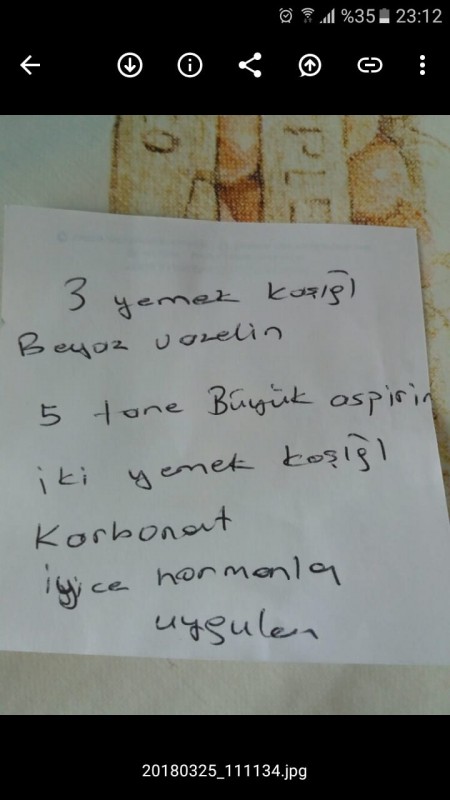 %35 23:12
3 yemek kaşığı
Beyaz vazelin
5 tane Büyük aspirin
iki yemek kaşığı
Karbonat
iyice harmanla
uygulan
20180325_111134.jpg